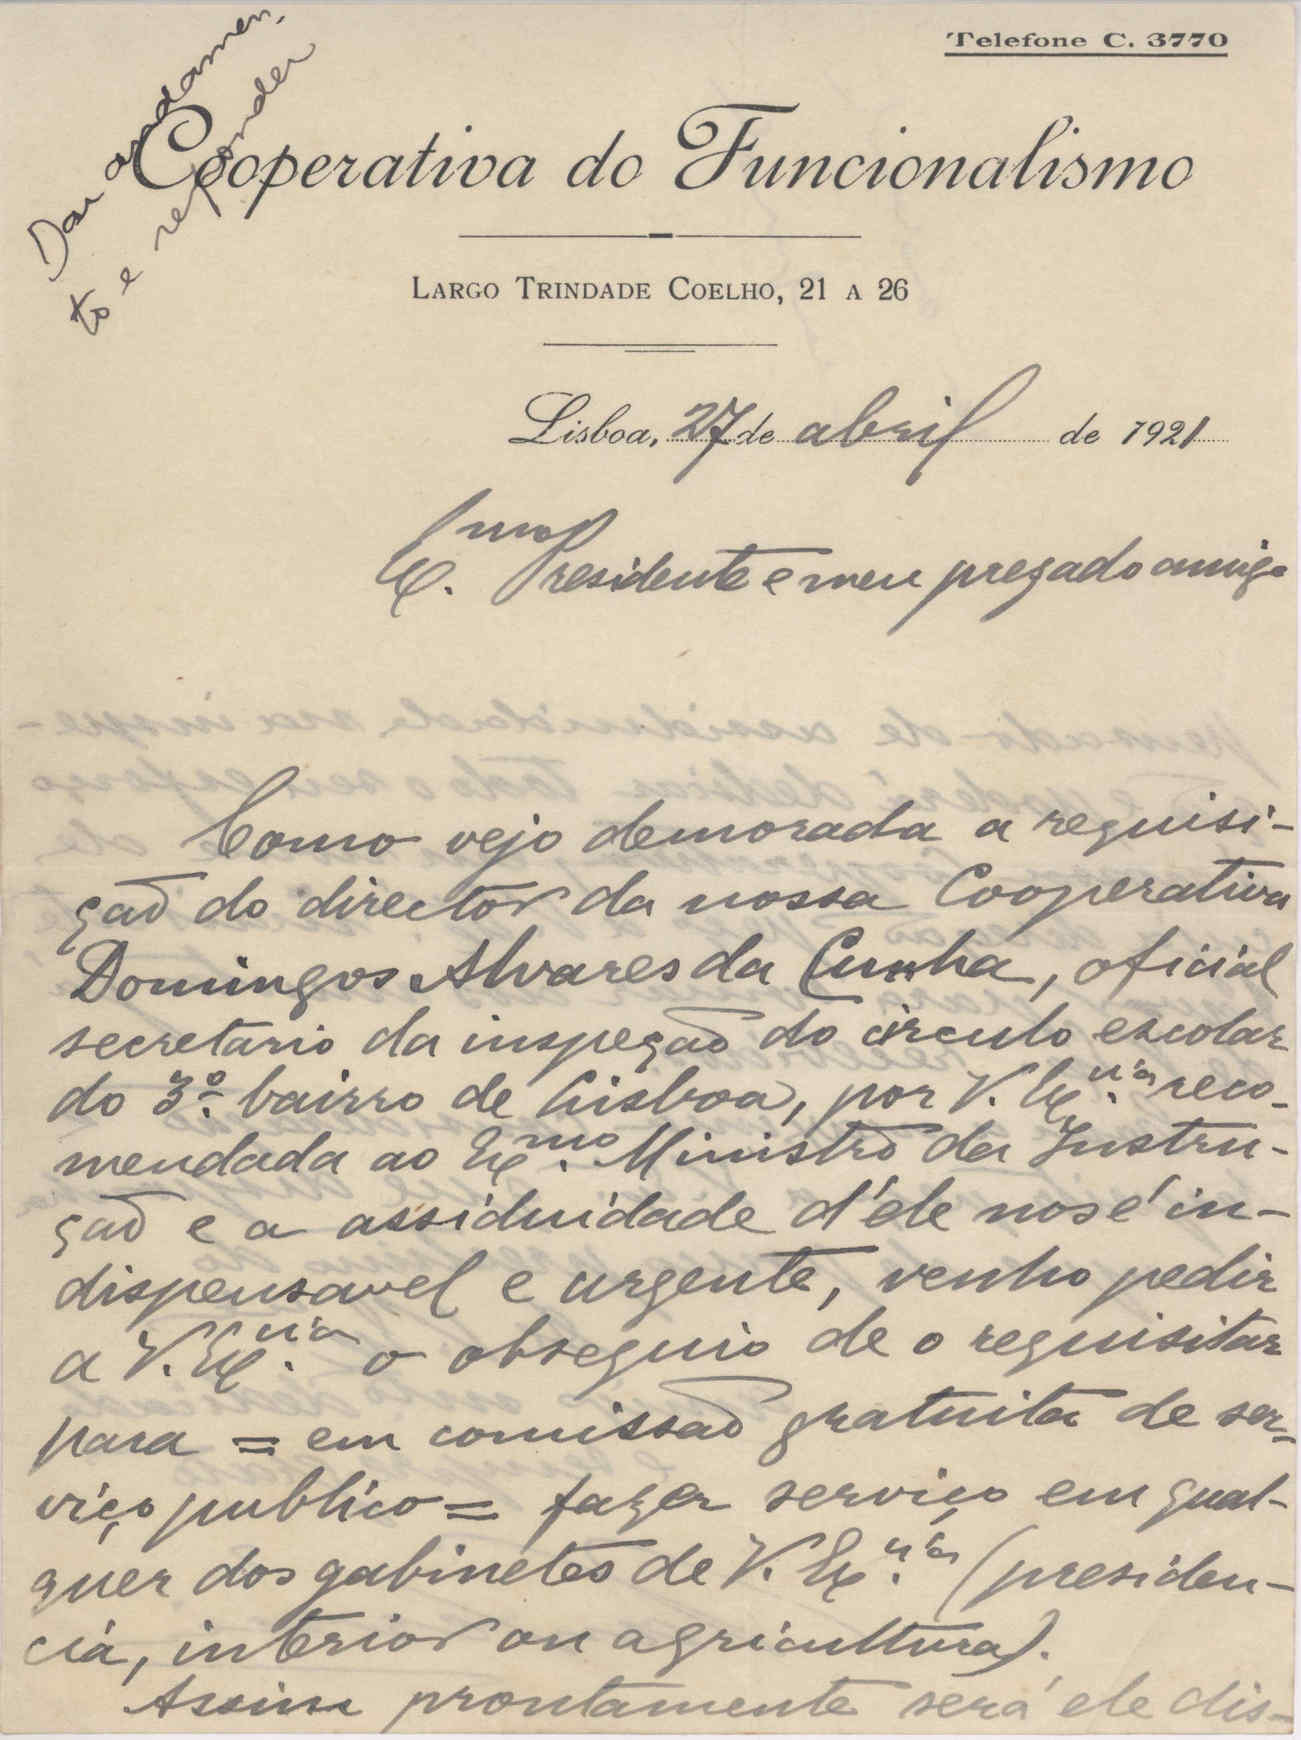 Dar andamen-
to e responder
Telefone C. 3770
Cooperativa do Funcionalismo
LARGO TRINDADE COELHO, 21 A 26
Lisboa, 27 de abril de 1921
Ex.mo Presidente e meu prezado amigo
Como vejo demorada a requisi-
ção do director da nossa Cooperativa
Domingos Alvares da Cunha, oficial
secretario da inspeção do circulo escolar
do 3º bairro de Lisboa, por V. Ex.cia reco-
mendada ao Ex.mo Ministro da Instru-
ção e a assiduidade d'ele nos é in-
dispensavel e urgente, venho pedir
a V. Ex.cia o obsequio de o requisitar
para = em comissão gratuita de ser-
viço publico = fazer serviço em qual-
quer dos gabinetes de V. Ex.cia (presiden-
cia, interior ou agricultura).
Assim prontamente será ele dis-